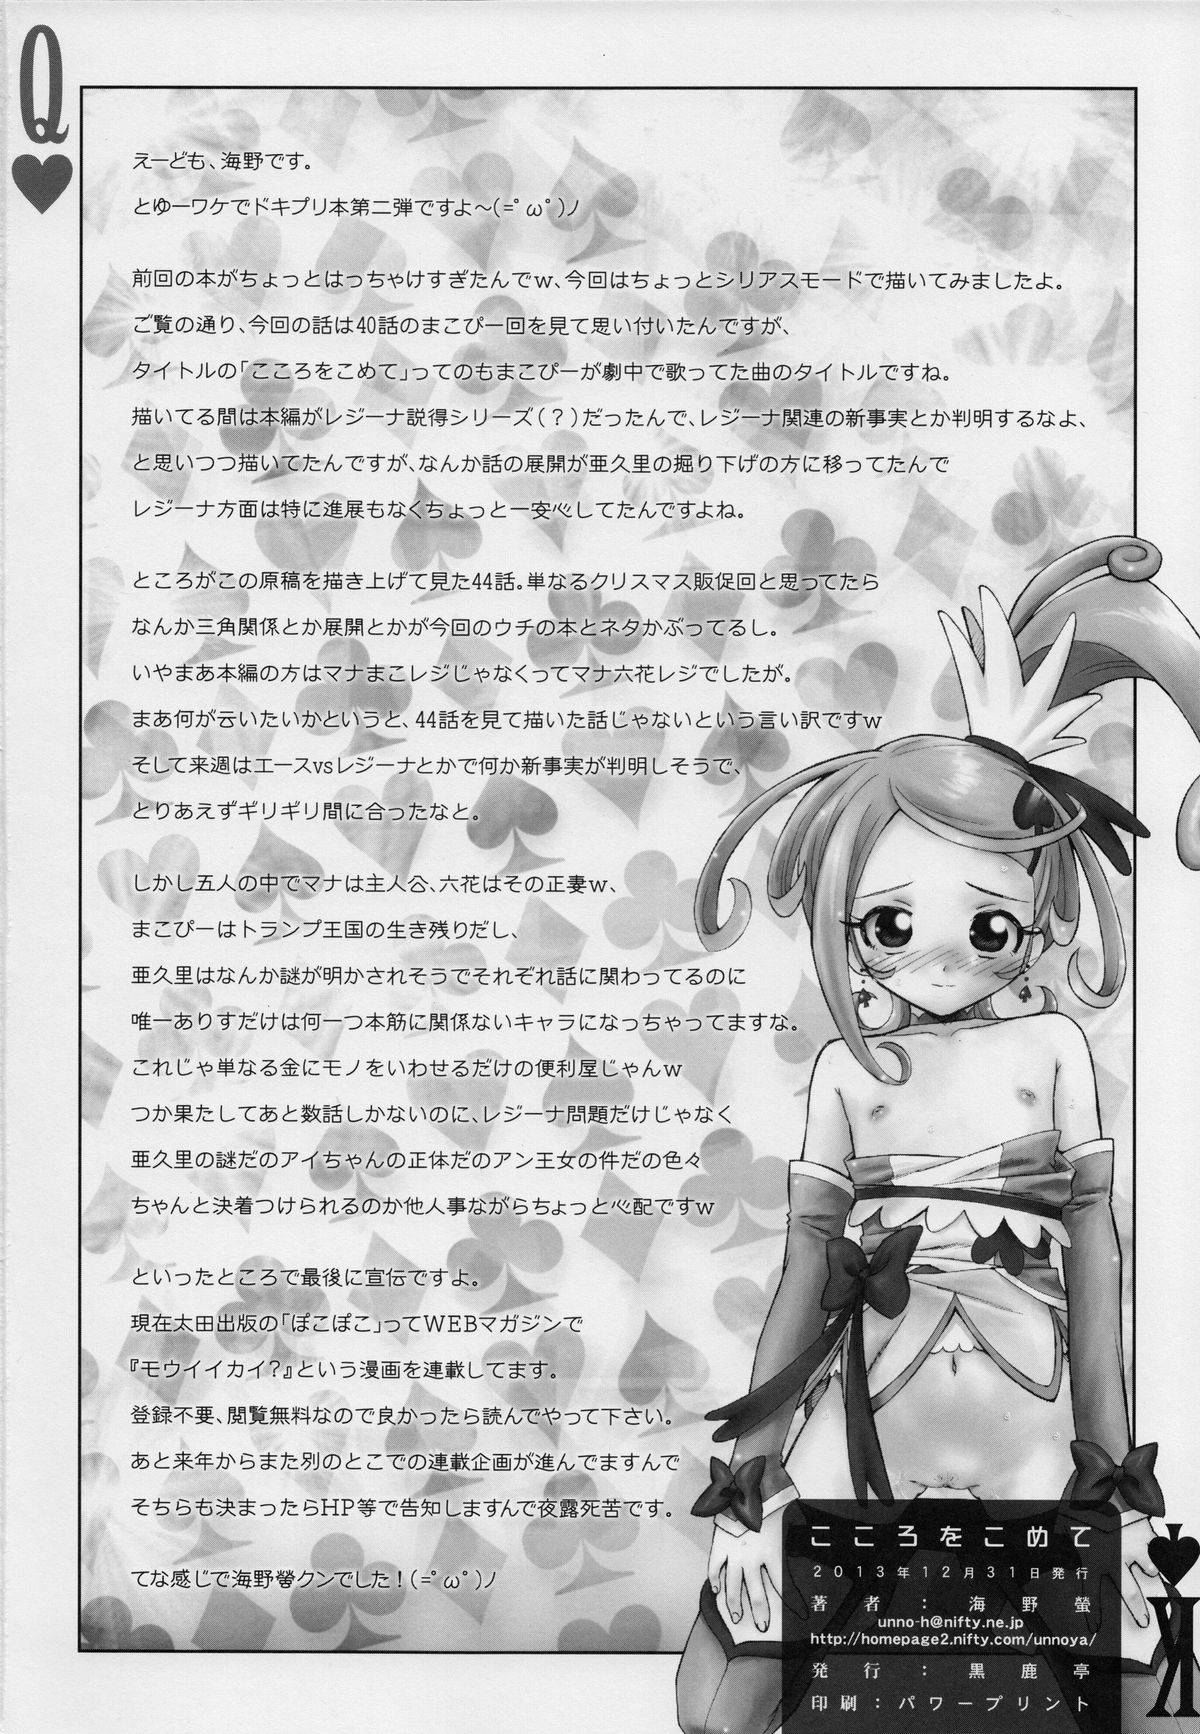 Q
えーども、海野です。
とゆーワケでドキプリ本第二弾ですよ～(=ﾟωﾟ)ノ
前回の本がちょっとはっちゃけすぎたんでw、今回はちょっとシリアスモードで描いてみましたよ。
ご覧の通り、今回の話は40話のまこぴー回を見て思い付いたんですが、
タイトルの「こころをこめて」ってのもまこぴーが劇中で歌ってた曲のタイトルですね。
描いてる間は本編がレジーナ説得シリーズ(？)だったんで、レジーナ関連の新事実とか判明するなよ、
と思いつつ描いてたんですが、なんか話の展開が亜久里の掘り下げの方に移ってたんで
レジーナ方面は特に進展もなくちょっと一安心してたんですよね。
ところがこの原稿を描き上げて見た44話。単なるクリスマス販促回と思ってたら
なんか三角関係とか展開とかが今回のウチの本とネタかぶってるし。
いやまあ本編の方はマナまこレジじゃなくってマナ六花レジでしたが。
まあ何が云いたいかというと、44話を見て描いた話じゃないという言い訳ですw
そして来週はエースvsレジーナとかで何か新事実が判明しそうで、
とりあえずギリギリ間に合ったなと。
しかし五人の中でマナは主人公、六花はその正妻w、
まこぴーはトランプ王国の生き残りだし、
亜久里はなんか謎が明かされそうでそれぞれ話に関わってるのに
唯一ありすだけは何一つ本筋に関係ないキャラになっちゃってますな。
これじゃ単なる金にモノをいわせるだけの便利屋じゃんw
つか果たしてあと数話しかないのに、レジーナ問題だけじゃなく
亜久里の謎だのアイちゃんの正体だのアン王女の件だの色々
ちゃんと決着つけられるのか他人事ながらちょっと心配ですw
といったところで最後に宣伝ですよ。
現在太田出版の「ぽこぽこ」ってWEBマガジンで
『モウイイカイ?』という漫画を連載してます。
登録不要、閲覧無料なので良かったら読んでやって下さい。
あと来年からまた別のとこでの連載企画が進んでますんで
そちらも決まったらHP等で告知しますんで夜露死苦です。
てな感じで海野螢クンでした！(=ﾟωﾟ)ノ
こころをこめて
2013年12月31日発行
著者：海野螢
unno-h@nifty.ne.jp
http://homepage2.nifty.com/unnoya/
発行：黒鹿亭
印刷：パワープリント
K